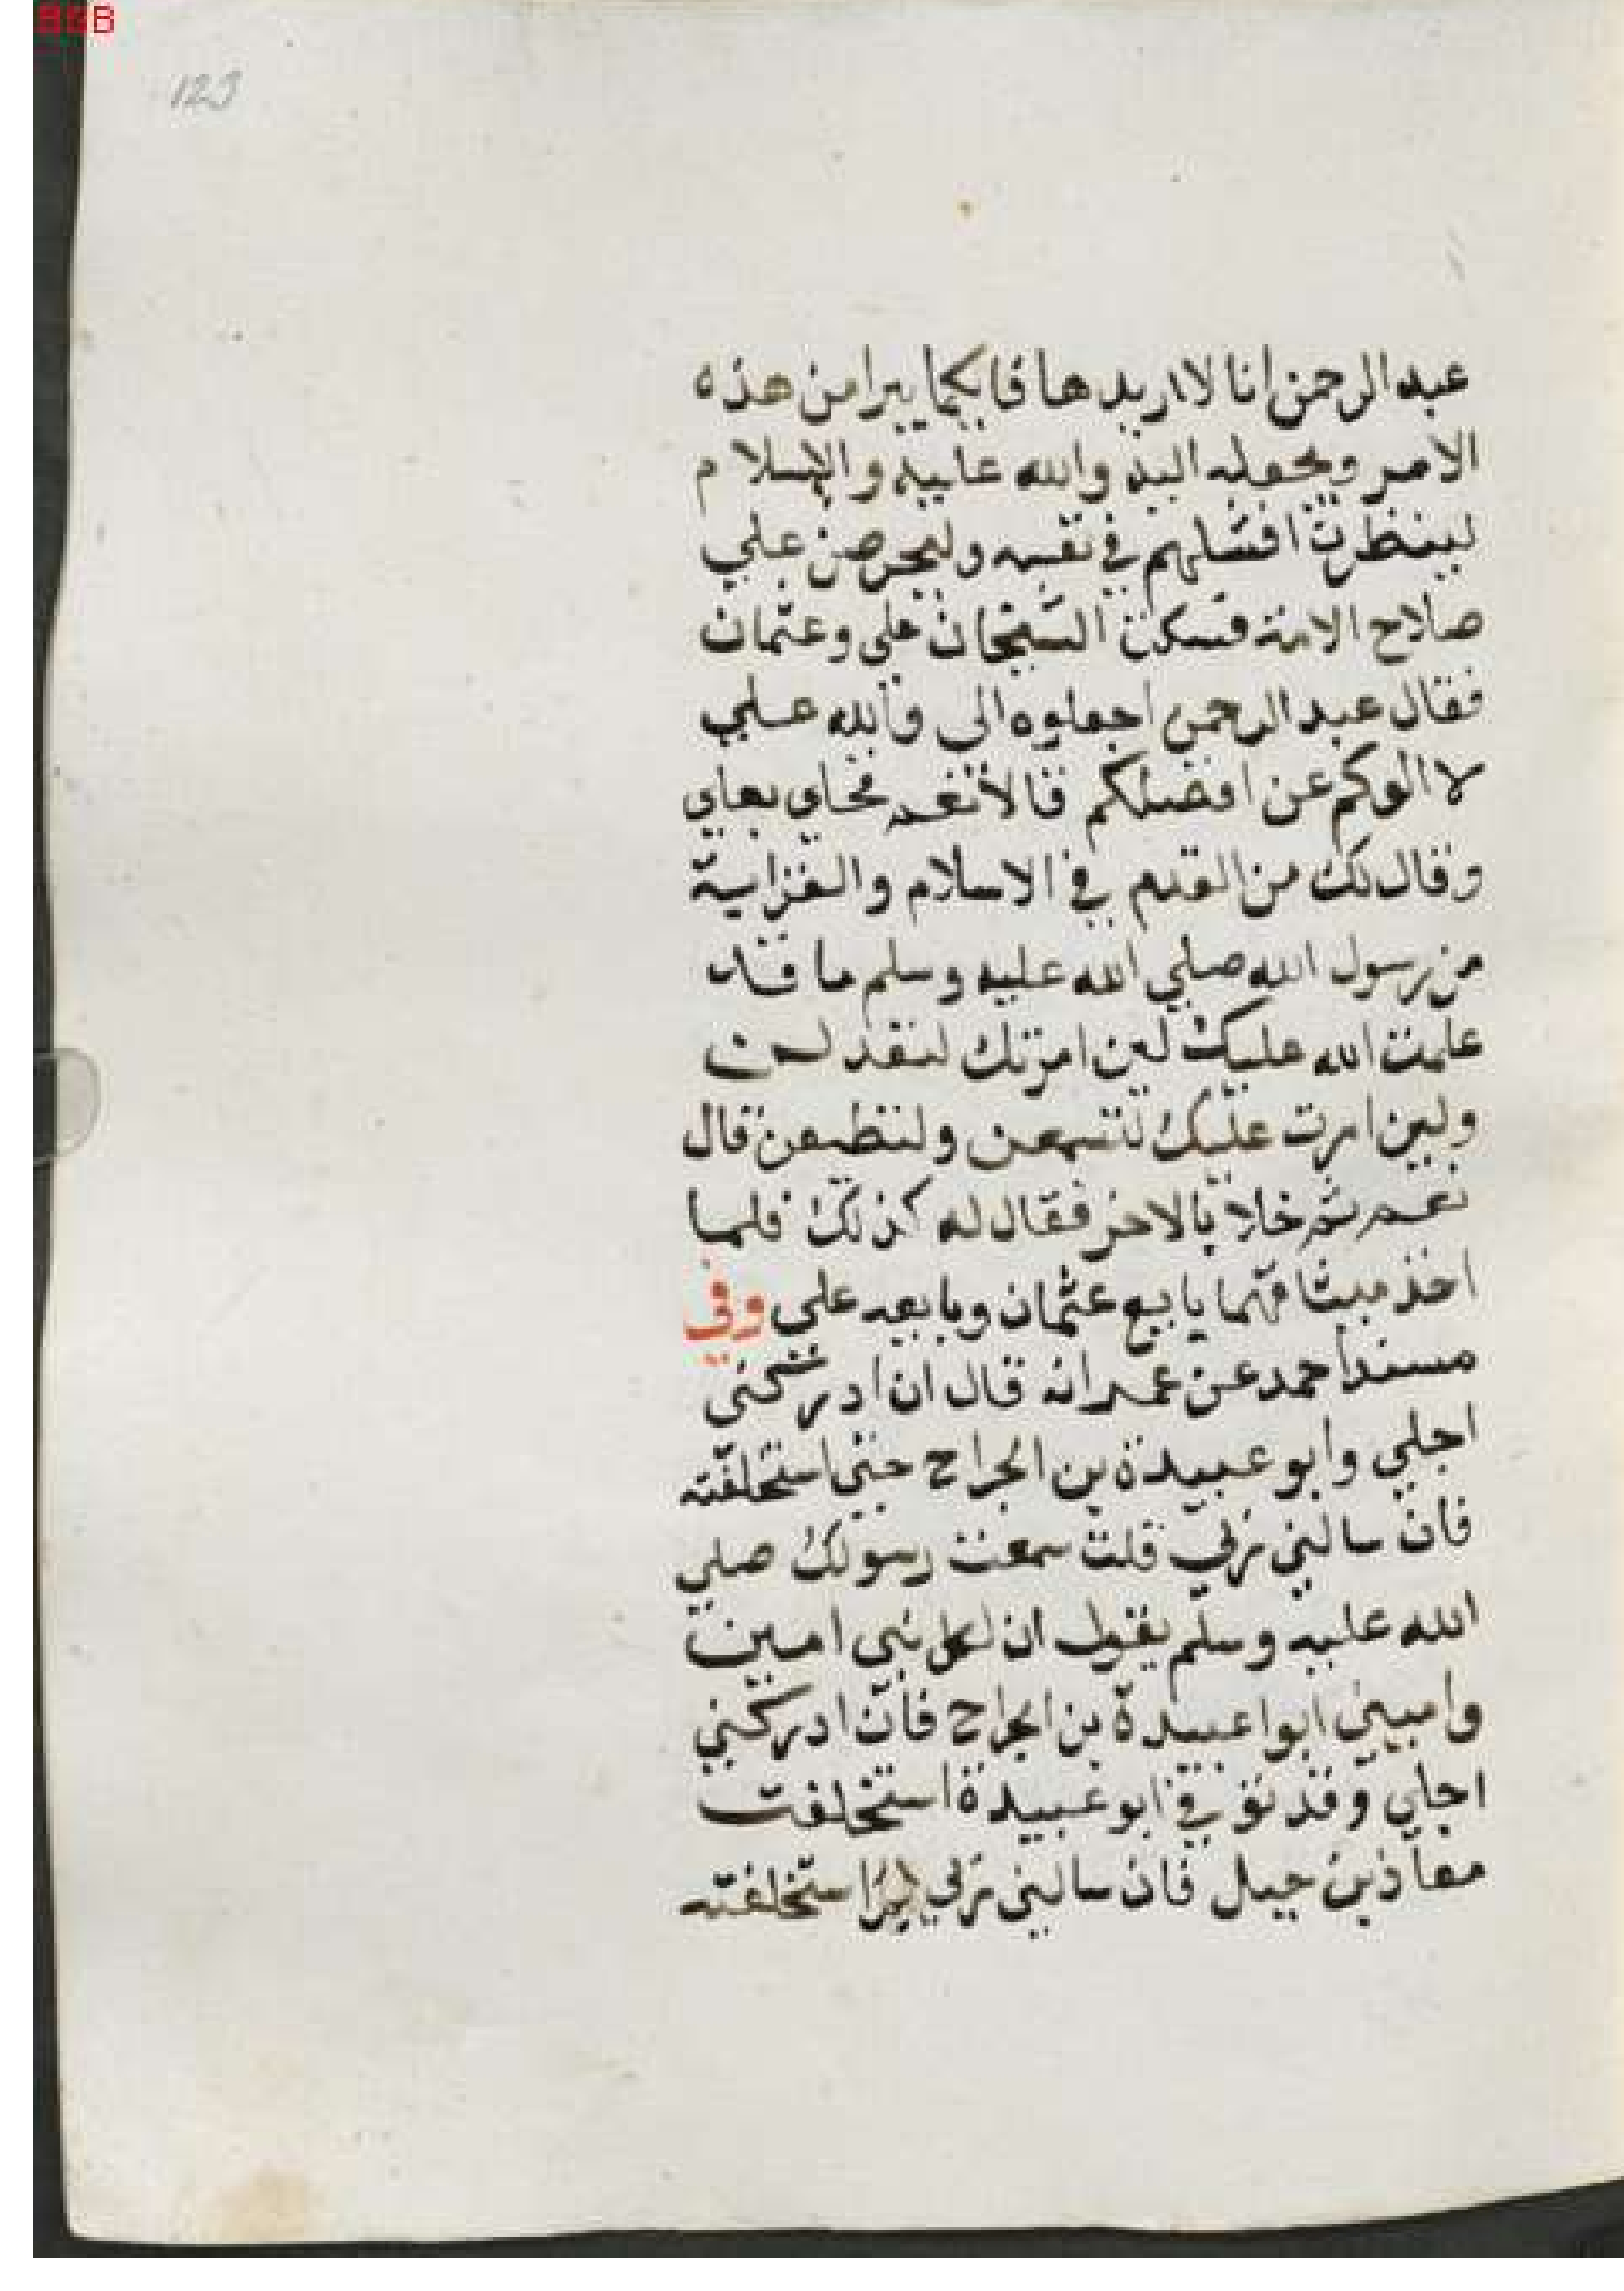 BSB
123
عبد الرحمن انا لا اريدها فايكما يبرا من هذه
الامر ونجعله اليه والله عليه والاسلام
لينظرن افضلهم في نفسه وليحرصن علي
صلاح الامة فسكت الشيخان علي وعثمان
فقال عبد الرحمن اجعلوه الي والله علي
لا الوكم عن افضلكم قالا نعم فخلي بعلي
وقال لك من القدم في الاسلام والقرابة
من رسول الله صلي الله عليه وسلم ما قد
علمت الله عليك لين امرتك لتعدلن
ولين امرت عليك لتسمعن ولتطيعن قال
نعم ثم خلا بالاخر فقال له كذلك فلما
اخذ ميثاقهما بايع عثمان وبايعه علي وفي
مسند احمد عن عمر انه قال ان ادركني
اجلي وابو عبيدة بن الجراح حي استخلفته
فان سالني ربي قلت سمعت رسولك صلي
الله عليه وسلم يقول ان لكل نبي امين
واميني ابوا عبيدة بن الجراح فان ادركني
اجلي وقد توفي ابو عبيدة استخلفت
معاذ بن جبل فان سالني ربي لم استخلفته